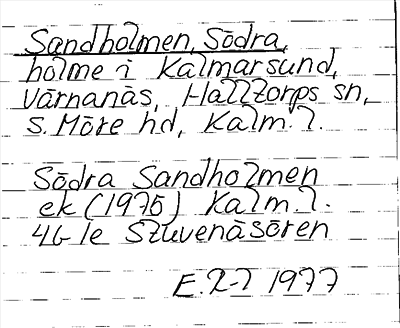 Sandholmen, Södra,
holme i Kalmarsund,
Värnanäs, Halltorps sn,
S. Möre hd, Kalm. l.
Södra Sandholmen
ek (1975) Kalm. l.
4G 1e Stuvenäsören
E. R-z 1977